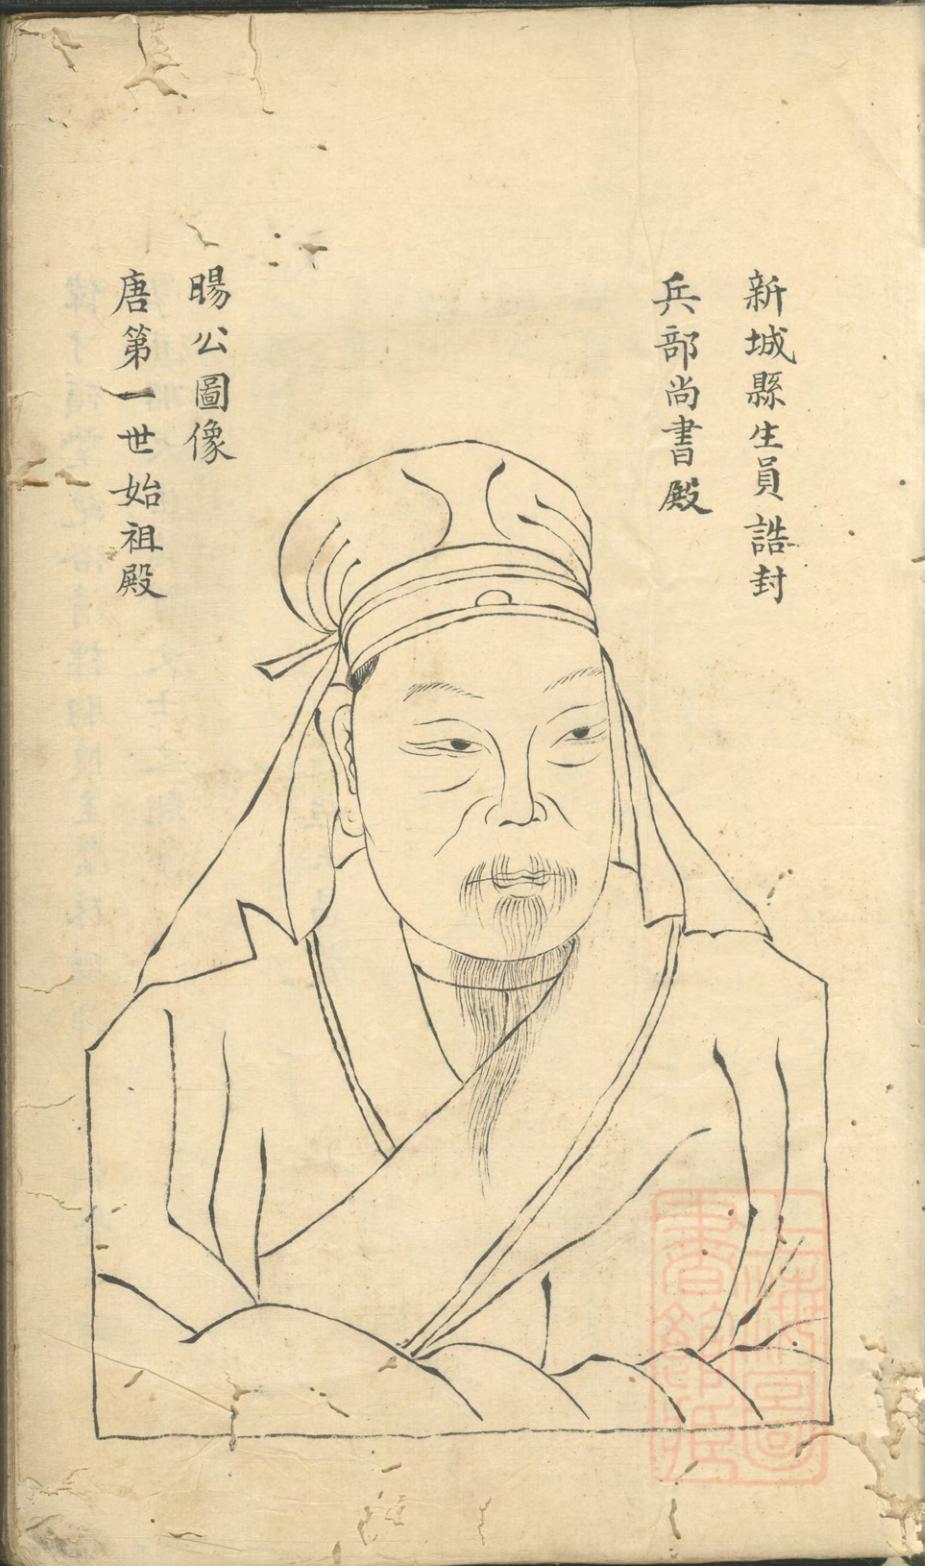 新城縣生員誥封
兵部尚書殿
暘公圖像
唐第一世始祖殿
上海圖書館藏